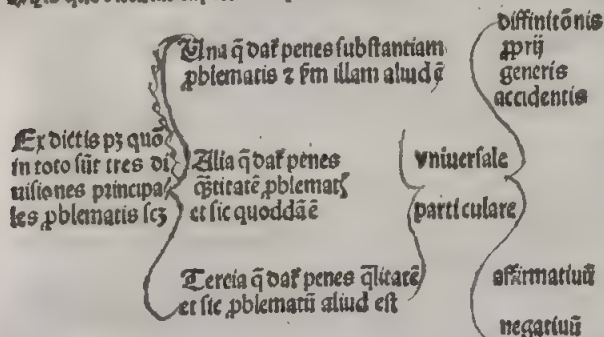 Ex dictis pꝫ quō
in toto sūt tres di
uisiones principa
les ꝓblematis scꝫ
Una q̄ dať penes substantiam
ꝓblematis ⁊ ẜm illam aliud ē
Alia q̄ dať penes
q̄titatē ꝓblematꝭ
et sic quoddā ē
Tercia q̄ dať penes q̄litatē
et sic ꝓblematū aliud est
diffinitōnis
ꝓprij
generis
accidentis
vniuersale
particulare
affirmatiuū
negatiuū